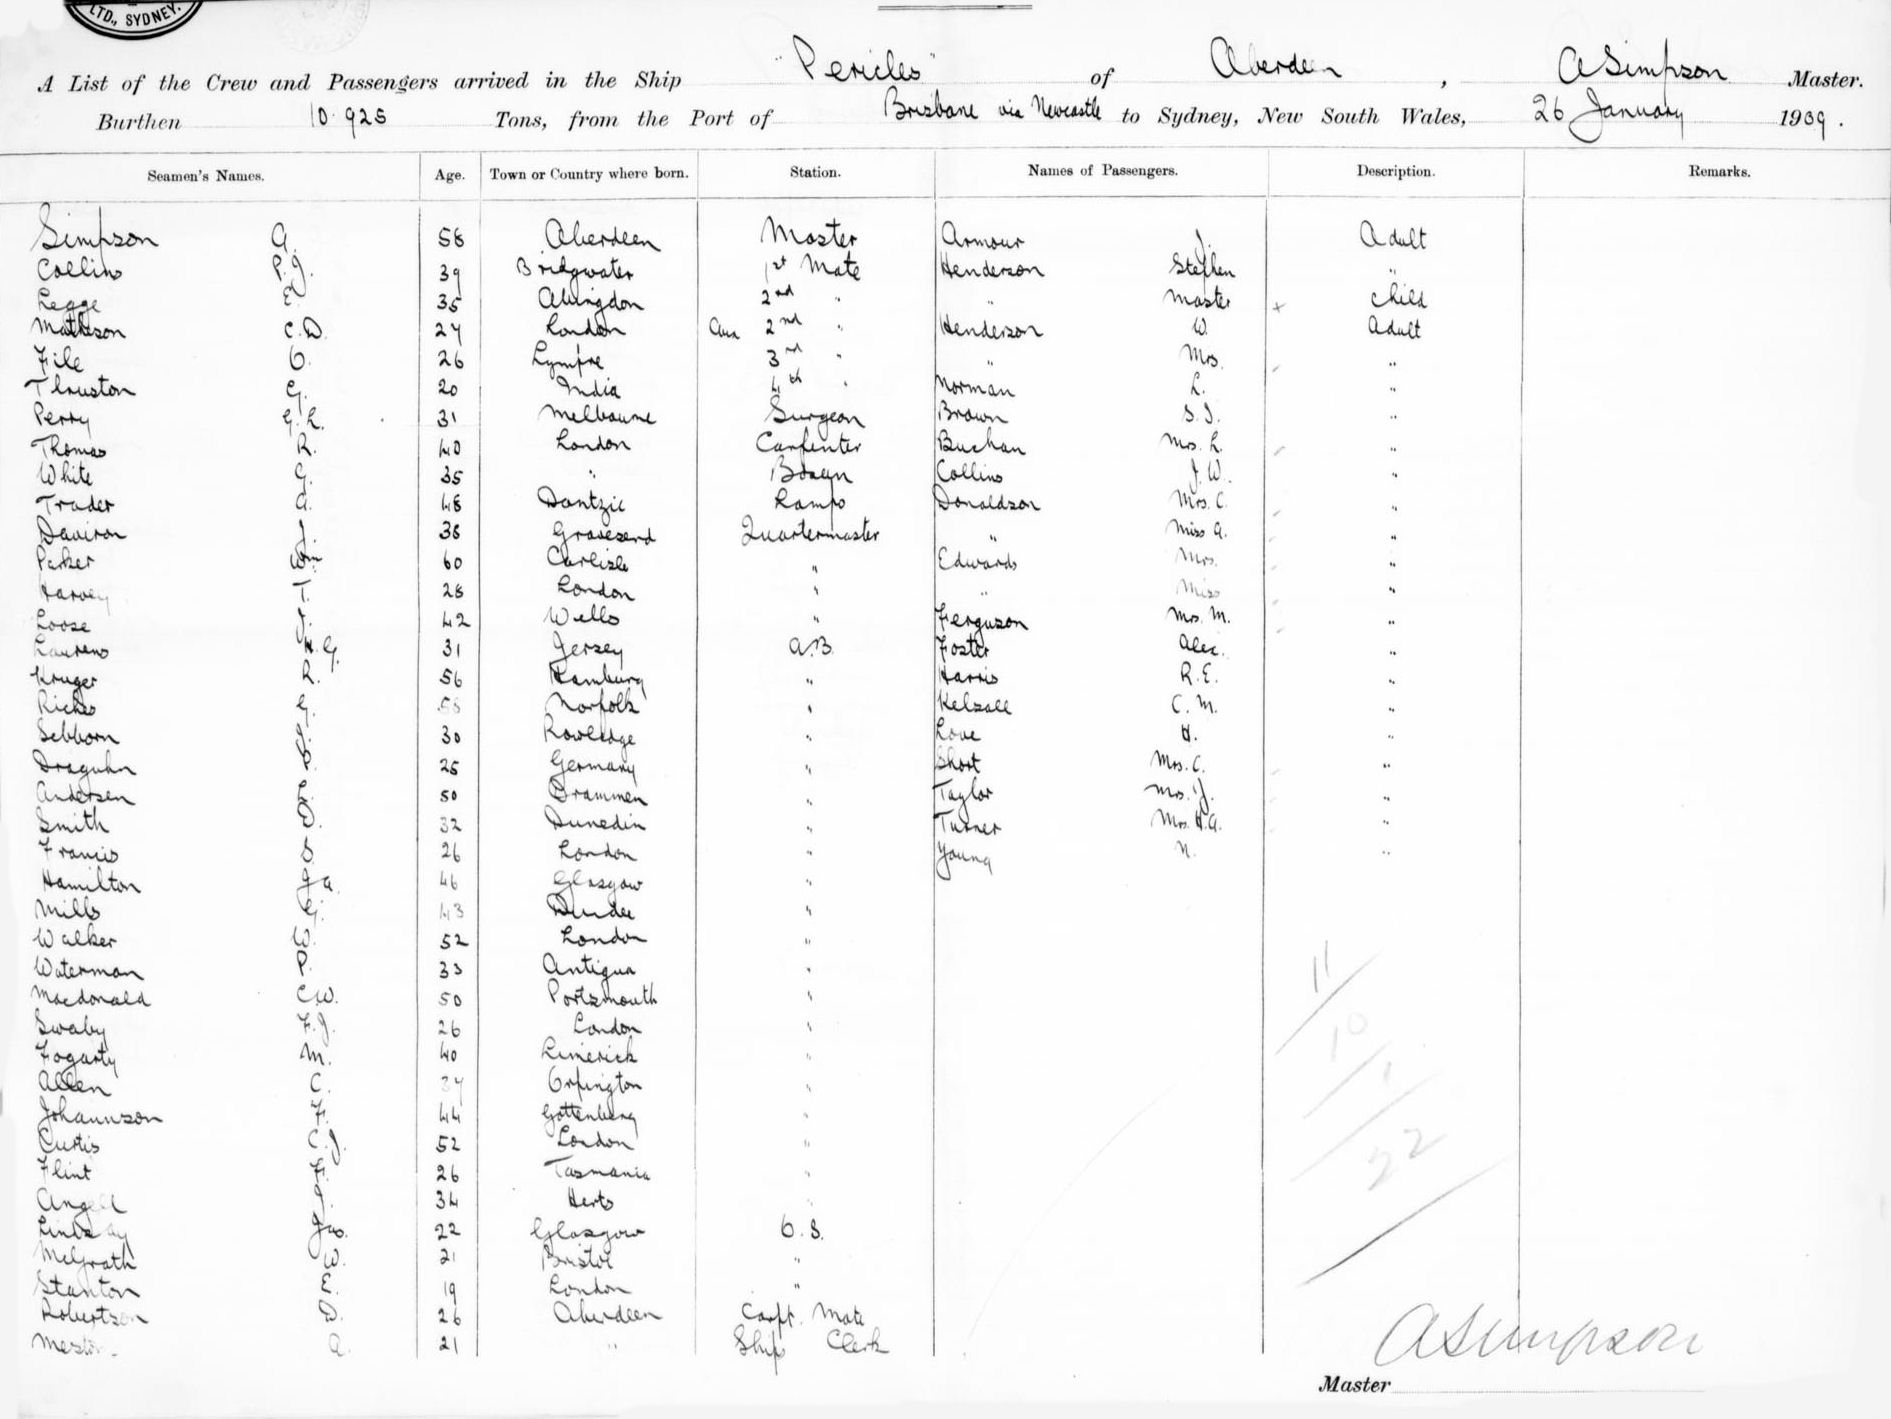 LTD., SYDNEY.
A List of the Crew and Passengers arrived in the Ship "Pericles" of Aberdeen, A Simpson Master.
Burthen 10.925 Tons, from the Port of Brisbane via Newcastle to Sydney, New South Wales, 26 January 1909.
Seamen's Names. Age. Town or Country where born. Station. Names of Passengers. Description. Remarks.
Simpson A. 58 Aberdeen Master Armour J. Adult
Collins P.J. 39 Bridgwater 1st Mate Henderson Stephen "
Legge E. 35 Abingdon 2nd " " Master + Child
Matheson C.D. 27 London Aux 2nd " Henderson W. Adult
File O. 26 Lympne 3rd " " Mrs. "
Thruston G. 20 India 4th " Norman L. "
Perry G.L. 31 Melbourne Surgeon Brown S.J. "
Thomas R. 40 London Carpenter Buchan Mrs. L. "
White G. 35 " Bosun Collins J.W. "
Trader A. 48 Dantzic Lamps Donaldson Mrs. C. "
Davison J. 38 Gravesend Quartermaster " Miss A. "
Parker Wm 60 Carlisle " Edwards Mrs. "
Harvey T. 28 London " " Miss "
Loose J. 42 Wells " Ferguson Mrs. M. "
Laurens H.G. 31 Jersey A.B. Foster Alec. "
Kruger R. 56 Hamburg " Harris R.E. "
Riches G. 58 Norfolk " Kelsall C.M. "
Sebborn J. 30 Rowledge " Love H. "
Draguhn 25 Germany " Short Mrs. C. "
Andersen 50 Drammen " Taylor Mrs. J. "
Smith D. 32 Dunedin " Turner Mrs. H.A. "
Francis S. 26 London " Young N. "
Hamilton J.A. 46 Glasgow "
Mills G. 43 Dundee "
Walker W. 52 London "
Waterman P. 33 Antigua "
Macdonald C.W. 50 Portsmouth "
Swaby F.J. 26 London "
Fogarty M. 40 Limerick "
Allen C. 37 Orpington "
Johannson F. 44 Gottenberg "
Curtis C.J. 52 London "
Flint F. 26 Tasmania "
Angell J. 34 Herts "
Lindsay Jas. 22 Glasgow O.S.
McGrath W. 21 Bristol "
Stanton E. 19 London "
Robertson D. 26 Aberdeen Carpt. Mate
Meston A. 21 " Ship Clerk
11
10
1
22
A Simpson
Master